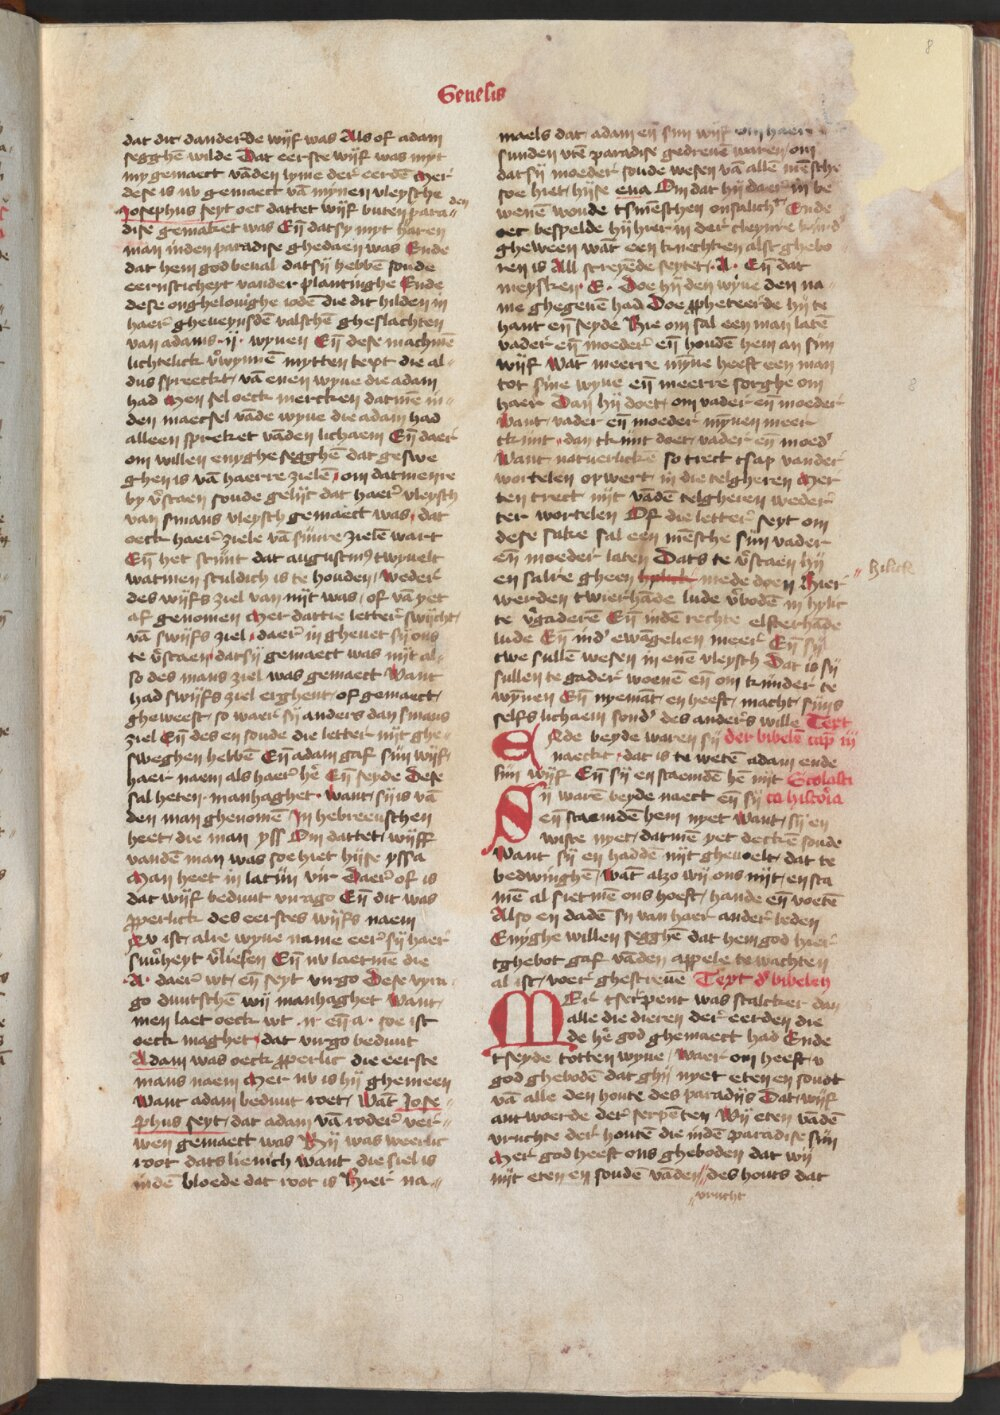 Genesis
8
dat dit dander̃de wijf was Als of adam
segghē wilde Dat eerste wijf was myt
my gemaect vādēn lyme der eerdē Mer
dese is nv gemaect vā mynen vleysche
Josephus seyt oec dattet wijf buten para den
dise gemaket was Eñ datsy myt haren
man inden paradise ghedaen was Ende
dat hem god beual datsij hebbē soude
eernsticheyt vander plantinghe Ende
dese onghelouighe iodē die dit hilden in
haer gheueynsdē valschē gheslachten
van adams .ij. wyuen Eñ dese machmē
lichtelick v̄wynnē mytten text die al
dus spreeckt vā enen wyue die adam
had Men sel oeck mercken datmē in
den maecsel vāde wyue die adam had
alleen spreket vāden lichaem Eñ daer
om willen enyghe segghē dat geswe
ghen is vā haerre zielē om datmenre
by v̄staen soude gelijc dat haer vleysch
van smans vleysch gemaect was dat
oeck haer ziele vā sijnre zielē wart
Eñ het schijnt dat augustinꝰ twyuelt
watmen sculdich is te houden weder
des wijfs ziel van nijt was of vā yet
af genomen Mer dattie letter swijcht
vā swijfs ziel daer in gheuet sij ons
te v̄staen datsij gemaect was nijt al
so des mans ziel was gemaect Want
had swijfs ziel erghent of gemaect
gheweest so waer sij anders dan smans
ziel Eñ des en soude die letter nijt ghe
sweghen hebbē Eñ adam gaf sijn wijf
haer naem als haer hē Eñ seyde Dese
sal heten manhaghet Want sij is vā
den man ghenomē In hebreeuschen
heet die man yss Om dattet wijff
vandē man was soe hiet hijse yssa
Man heet in latijn vir Daer of is
dat wijf beduut virago Eñ dit was
ꝓperlick des eerstes wijfs naem
Nv ist alre wyue name eer sij haer
suu̅heyt v̄liesen Eñ nv laetmē die
.A. daer wt eñ seyt virgo Dese vyra
go duutschē wij manhaghet Want
men laet oeck wt .ir eñ a. soe ist
oeck maghet dat virgo beduut
Adam was oeck ꝓperlic die eerste
mans naem Mer nv is hij ghemeen
Want adam beduut roet Wāt Jose
phus seyt dat adam vā roder ver
wen gemaect was Hij was weerlic
root dats lienich want die siel is
indē bloede dat root is Hier na
maels dat adam eñ sijn wijf om haer
sunden vtē paradise gedreuē waren om
datsij moeder soude wesen vā allē mēsche
soe hiet hijse eua Om dat hij daer in be
wenē woude tsmēschen onsalichꝭ Ende
oec bespelde hij hier in der cleynre kind
gheween wāt een knechken alst ghebo
ren is All screyēde seytet .A. Eñ dat
meysken .E. Doe hij den wyue den na
me ghegeuē had Doe ꝓpheteerde hij te
hant eñ seyde Hier om sal een man latē
vader eñ moeder eñ houdē hem an sijn
wijf Wāt meerre mȳne heeft een man
tot sine wyue eñ meerre sorghe om
haer Dan hij doet om vader eñ moeder
Want vader eñ moeder mȳnen meer
tkint dan tkint doet vader eñ moed
Want natuerlickē so trect tsap vander
wortelen opwert in die telgheren Mer
ten trect nijt vādē telgheren weder
ter wortelen Of die letter seyt om
dese sake sal een mēsche sijn vader
eñ moeder laten Dats te v̄staen hij
en salre gheen hylick mede doen Hier
hilick
werden twierhāde lude v̄bodē in hylic
te v̄gaderē Eñ indē rechte elfterhāde
lude Eñ ind ewāgelien meer Eñ sij
twe sullē wesen in enē vleysch Dat is sij
sullen te gader woenē eñ om kinder te
wȳnen Eñ nyemāt en heeft macht sijns
selfs lichaem sond des anders wille Text
Elde beyde waren sij der bibelē cap iij
naeckt dat is te wetē adam ende
sijn wijf Eñ sij en scaemdē hē nijt Scolasti
Sij warē beyde naect eñ sij ca historia
en scaemdē hem nyet Want sij en
wiste nyet datmē yet deckē soude
Want sij en haddē nijt gheuoelt dat te
bedwinghē Wāt alzo wij ons nijt en sca
mē al sietmē ons hoeft hande eñ voetē
Also en dadē sij van haer ander leden
Enijghe willen segghē dat hem god hier
tghebot gaf vāden appele te wachten
al ist voer ghescreuē Text d bibelen
Mer tserpent was scalcker dan
alle die dieren der eerden die
de hē god ghemaect had Ende
tseyde totten wyue Waer om heeft v
god ghebodē dat ghij nyet eten en soudt
vā alle den houte des paradijs Dat wijf
antwoerde der serpēten Wij eten vādē
vruchte der houtē die indē paradise sijn
Mer god heeft ons gheboden dat wij
nijt eten en soudē vādēn des houts dat
vrucht